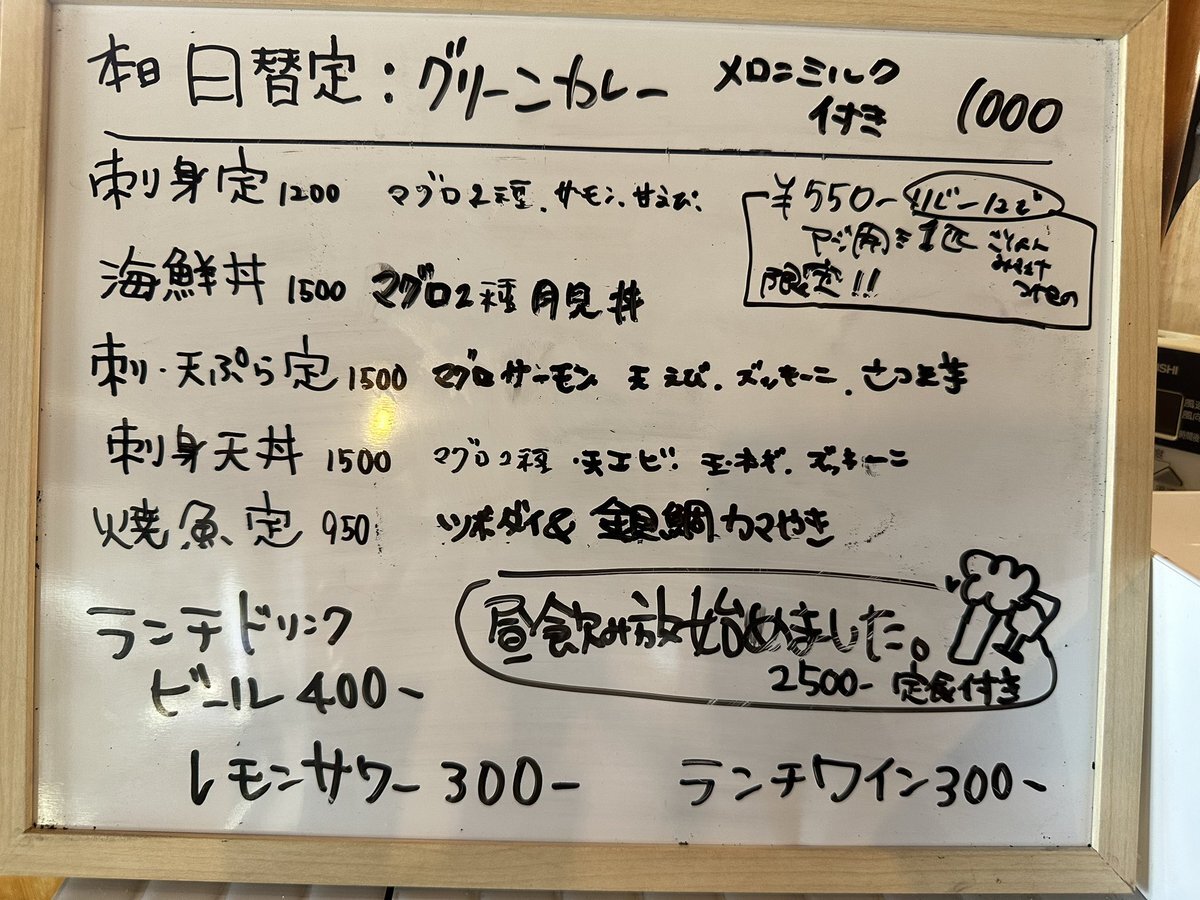 本日 日替定：グリーンカレー メロンミルク付き 1000
刺身定 1200 マグロ2種、サーモン、甘えび、
¥550-
アジ 1匹 ごはん
みそ汁
限定!!
海鮮丼 1500 マグロ2種 月見丼
刺・天ぷら定 1500 マグロ サーモン 天 えび、ズッキーニ、さつま芋
刺身天丼 1500 マグロ2種・天エビ・玉ネギ、ズッキーニ
焼魚定 950 ツボダイ& 銀鯛カマやき
ランチドリンク
ビール 400-
昼飲み放始めました。
2500- 定食付き
レモンサワー 300-
ランチワイン 300-